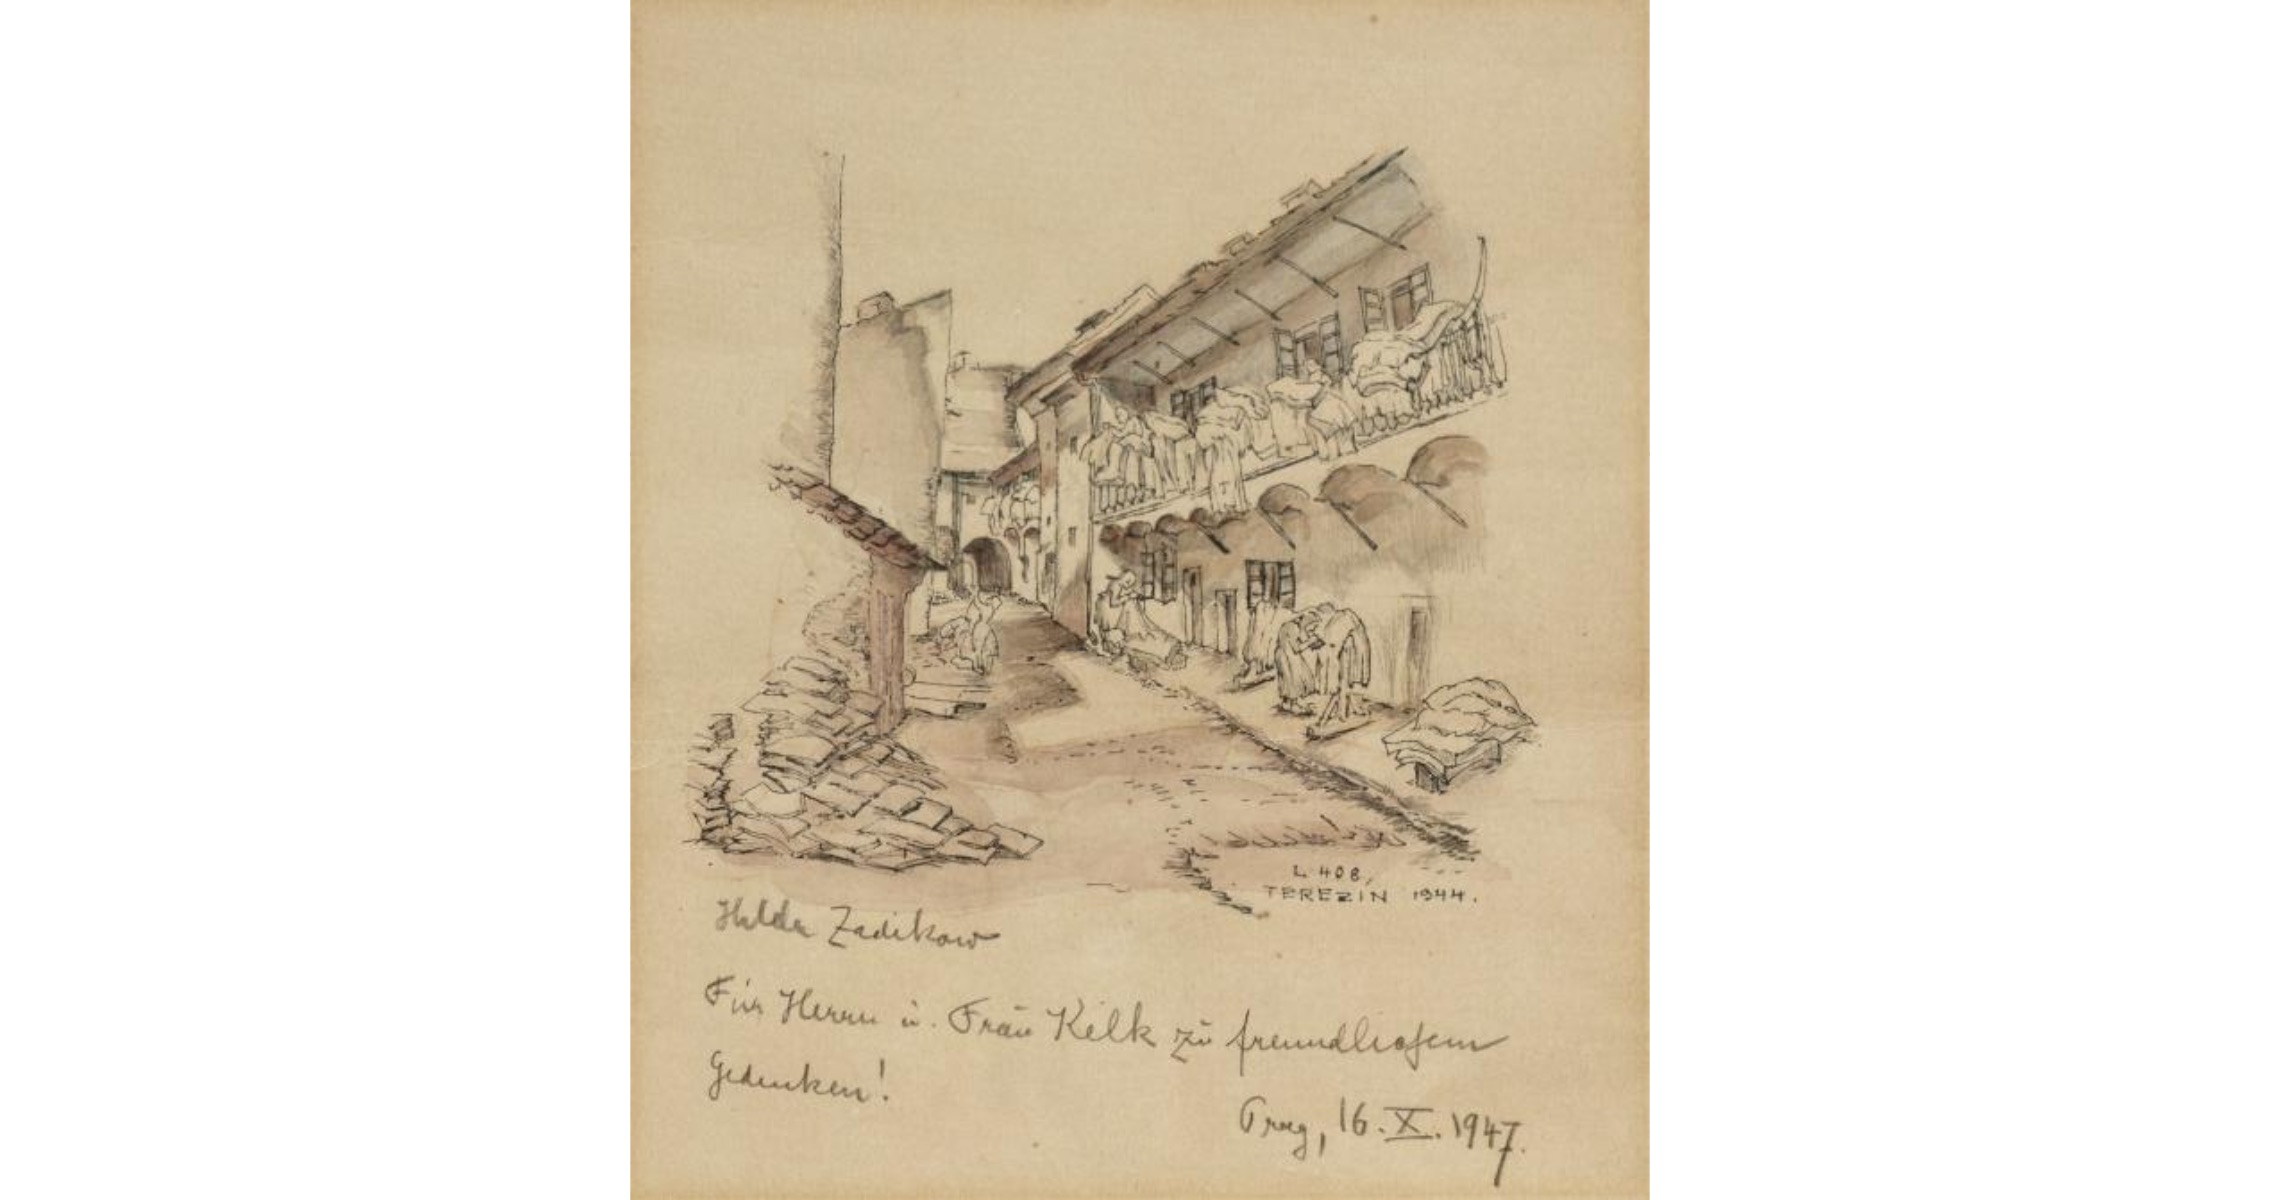 L 408,
TEREZIN 1944.
Hilda Zadikow
Für Herrn u. Frau Kelk zu freundlichem
Gedenken!
Prag, 16. X. 1947.